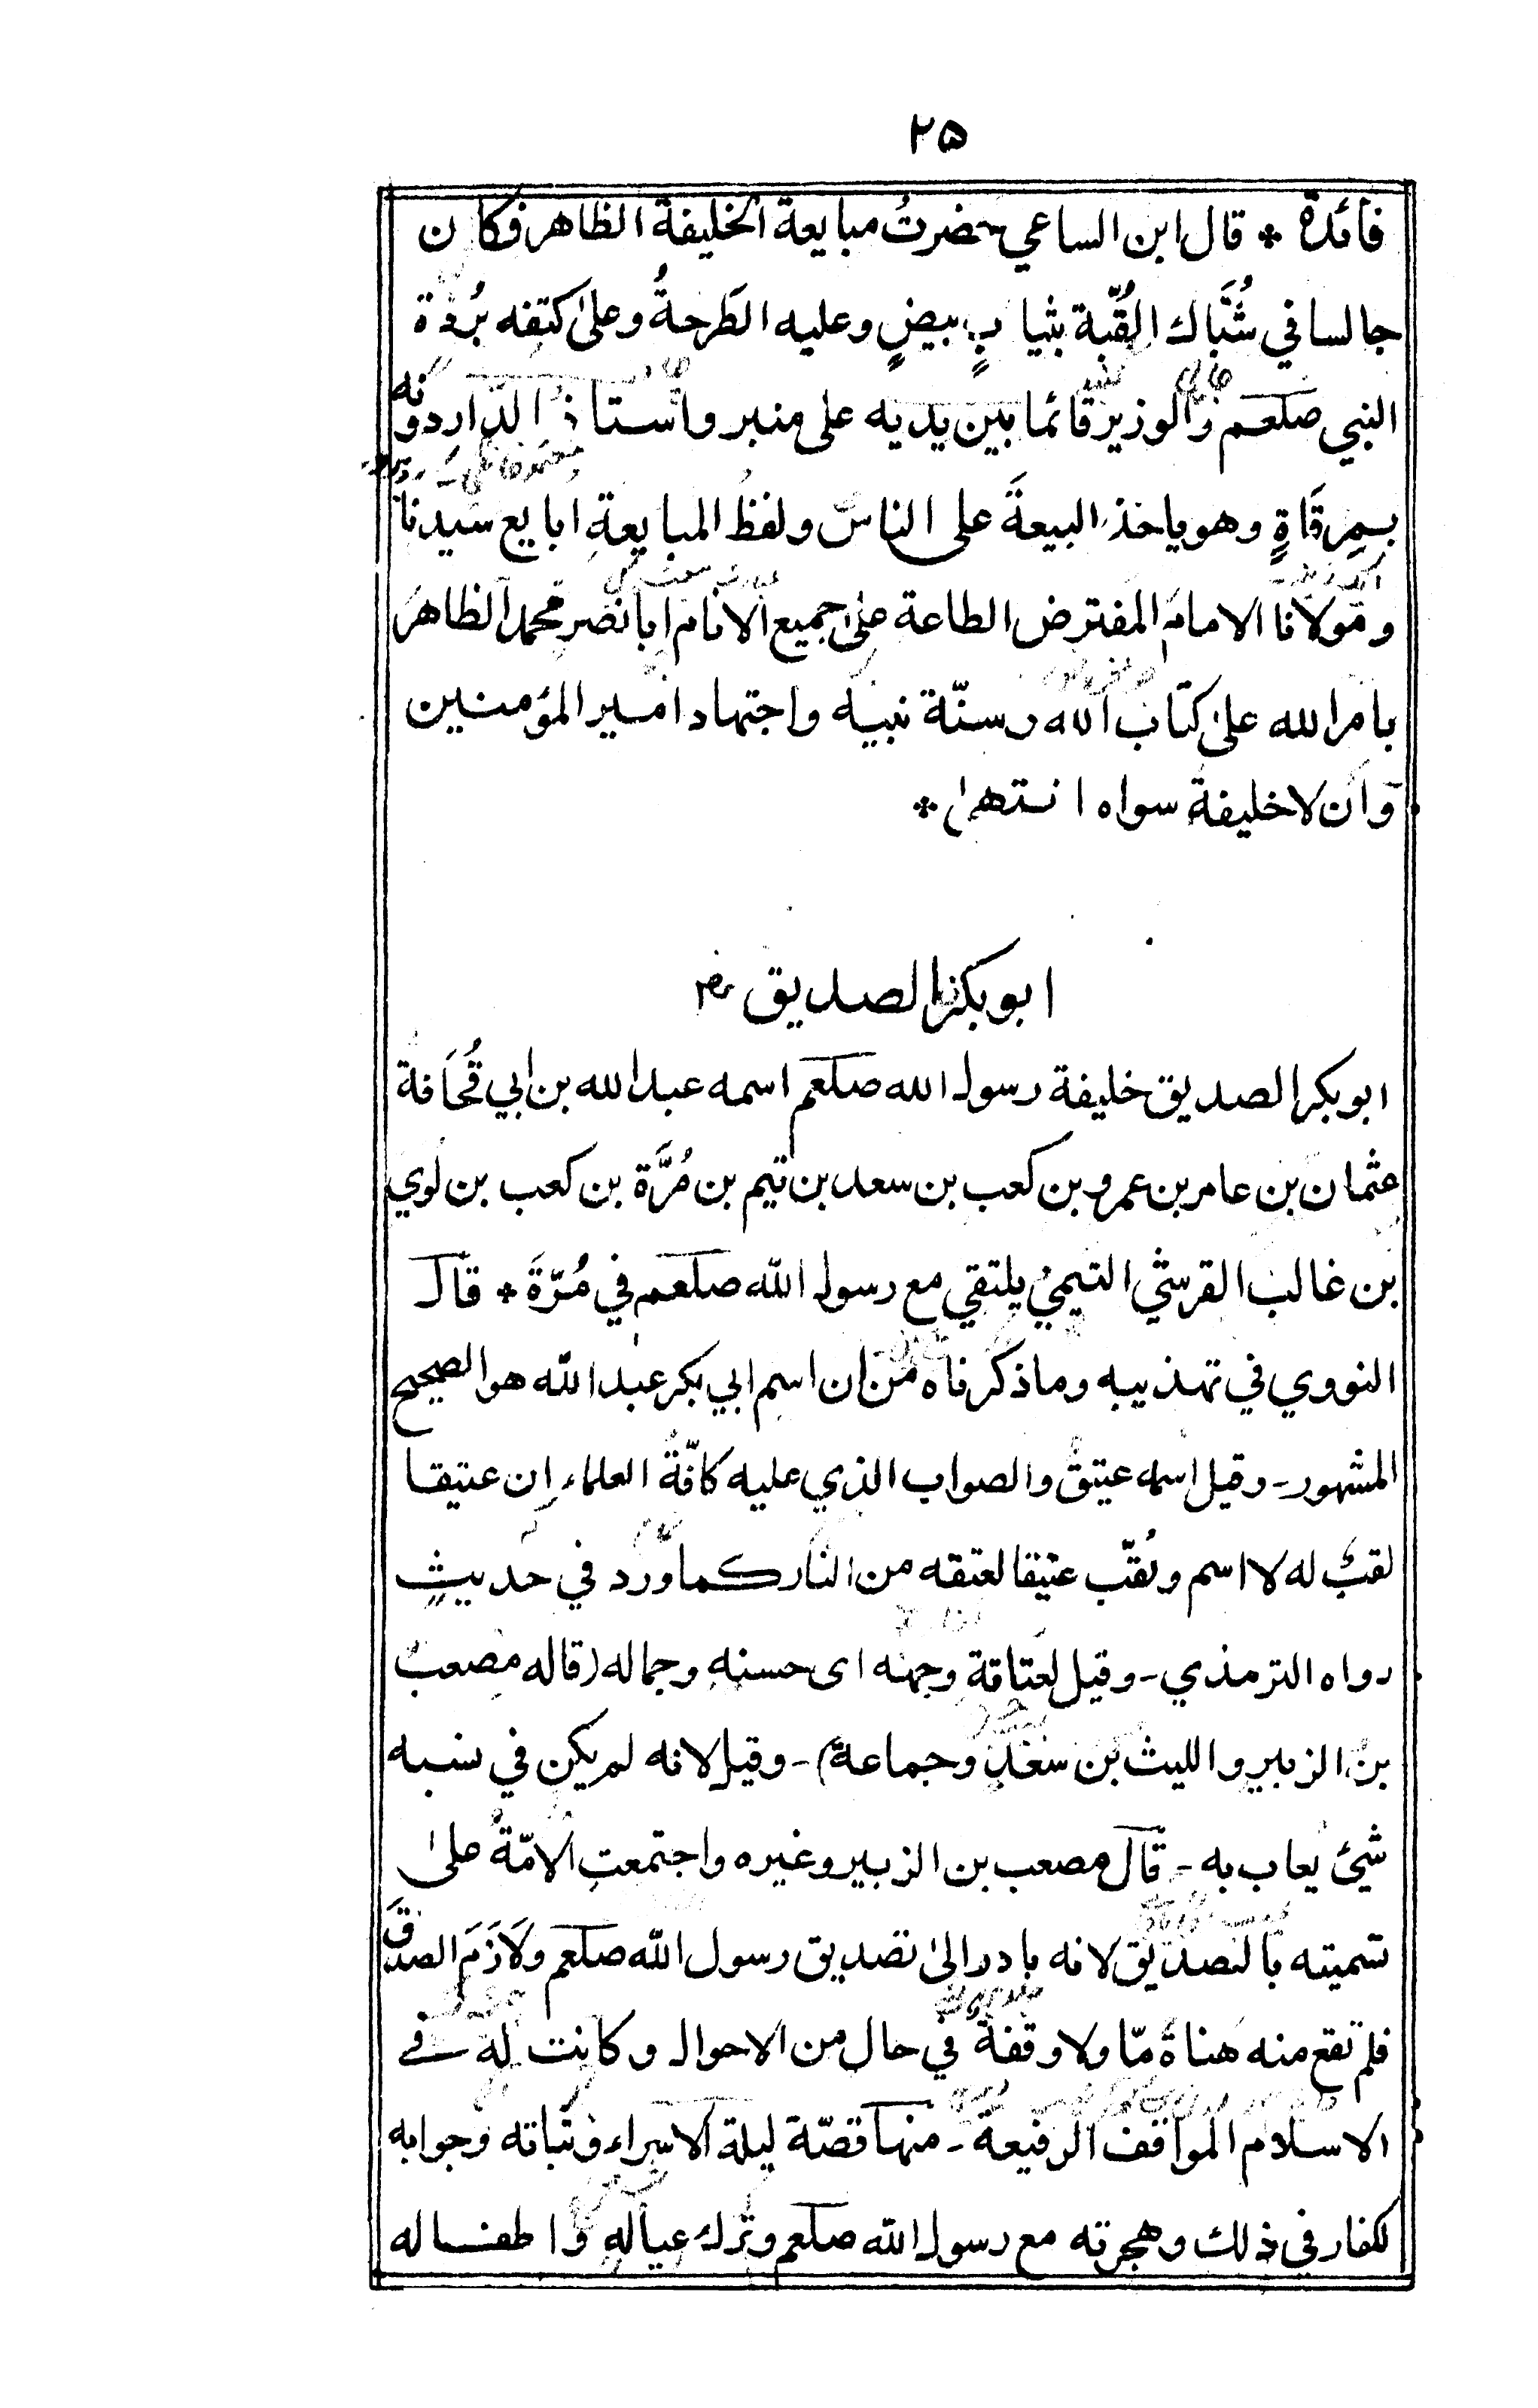 ۲۵
فائدة * قال ابن الساعي حضرتُ مبايعة الخليفة الظاهر فكان
جالسا في شُبَّاك القُبّة بثيابٍ بيضٍ وعليه الطَرحةُ وعلىٰ كتفه بُردة
النبي صلعم والوزير قائما بين يديه على منبر واستاذ الدار دونه
بمِرقَاةٍ وهو ياخذ البيعةَ على الناس ولفظُ المبايعةِ ابايع سيدنا
ومولانا الامام المفترض الطاعة علىٰ جميع الانام ابا نصر محمد الظاهر
بامر الله علىٰ كتاب الله وسنّة نبيه واجتهاد امير المؤمنين
وان لا خليفة سواه انتهىٰ *
ابو بكر الصديق رضـ
ابو بكر الصديق خليفة رسول الله صلعم اسمه عبد الله بن ابي قُحَافة
عثمان بن عامر بن عمرو بن كعب بن سعد بن تيم بن مُرَّة بن كعب بن لوي
بن غالب القرشي التيمي يلتقي مع رسول الله صلعم في مُرّةَ * قال
النووي في تهذيبه وما ذكرناه من ان اسم ابي بكر عبد الله هو الصحيح
المشهور - وقيل اسمه عتيق والصواب الذي عليه كافّة العلماء ان عتيقا
لقب له لا اسم ولُقّب عتيقا لعتقه من النار كما ورد في حديثٍ
رواه الترمذي - وقيل لعتاقة وجهه اى حسنه وجماله (قاله مصعب
بن الزبير والليث بن سعد وجماعة) - وقيل لانه لم يكن في نسبه
شيئ يعاب به - قال مصعب بن الزبير وغيره واجتمعت الامّة علىٰ
تسميته بالصديق لانه بادر الىٰ تصديق رسول الله صلعم ولَازَمَ الصدقَ
فلم تقع منه هناة مّا ولا وقفة في حال من الاحوال وكانت له في
الاسلام المواقف الرفيعة - منها قصّة ليلة الاسراء وثباته وجوابه
لكفار في ذلك وهجرته مع رسول الله صلعم وترك عياله واطفاله